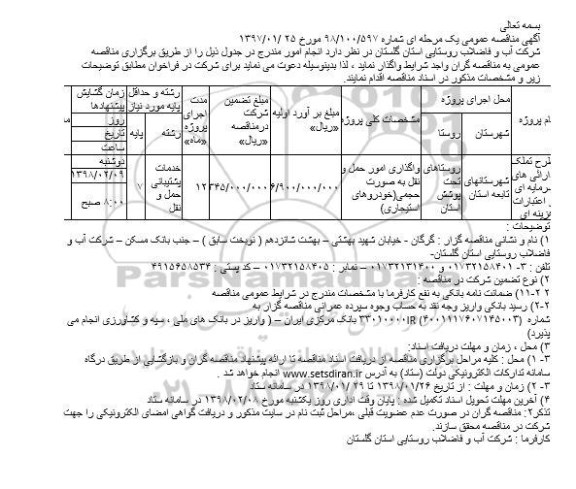 بسمه تعالی
آگهی مناقصه عمومی یک مرحله ای شماره ۹۸/۱۰۰/۵۹۷ مورخ ۲۵ /۱۳۹۷/۰۱
شرکت آب و فاضلاب روستایی استان گلستان در نظر دارد انجام امور مندرج در جدول ذیل را از طریق برگزاری مناقصه
عمومی به مناقصه گران واجد شرایط واگذار نماید ، لذا بدینوسیله دعوت می نماید برای شرکت در فراخوان مطابق توضیحات
زیر و مشخصات مذکور در اسناد مناقصه اقدام نمایند.
ام پروژه
محل اجرای پروژه
شهرستان
روستا
مشخصات کلی پروژه
مبلغ بر آورد اولیه «ریال»
مبلغ تضمین شرکت درمناقصه «ریال»
مدت اجرای پروژه «ماه»
رشته و حداقل پایه مورد نیاز
رشته
پایه
زمان گشایش پیشنهادها
روز
تاریخ
ساعت
طرح تملک
ارائی های
سرمایه ای
اعتبارات
زینه ای
شهرستانهای تابعه استان
روستاهای تحت پوشش استان
واگذاری امور حمل و نقل به صورت حجمی(خودروهای استیجاری)
۶/۹۰۰/۰۰۰/۰۰۰
۳۴۵/۰۰۰/۰۰۰
۱۲
خدمات پشتیبانی حمل و نقل
۷
دوشنبه
۱۳۹۸/۰۲/۰۹
۸:۰۰ صبح
توضیحات :
۱) نام و نشانی مناقصه گزار : گرگان - خیابان شهید بهشتی – بهشت شانزدهم ( نوبخت سابق ) – جنب بانک مسکن – شرکت آب و
فاضلاب روستایی استان گلستان-
تلفن : ۳- ۰۱۷۳۲۱۵۸۴۰۱ و ۰۱۷۳۲۱۳۱۴۰۰ – نمابر : ۰۱۷۳۲۱۵۸۴۰۵ – کد پستی : ۴۹۱۵۶۵۸۵۳۴
۲) نوع تضمین شرکت در مناقصه :
۲ ۲-۱۱ ضمانت نامه بانکی به نفع کارفرما با مشخصات مندرج در شرایط عمومی مناقصه
۲-۲) رسید بانکی واریز وجه نقد به حساب وجوه سپرده عمرانی مناقصه گزار به
شماره (۴۰۰۱۱۱۷۶۰۷۱۴۵۰۰۳) ۳۳۰۱۰۰۰۰IR بانک مرکزی ایران – ( واریز در بانک های ملی ، سپه و کشاورزی انجام می
پذیرد)
۳) محل ، زمان و مهلت دریافت اسناد:
۳- ۱) محل : کلیه مراحل برگزاری مناقصه از دریافت اسناد مناقصه تا ارائه پیشنهاد مناقصه گران و بازگشایی از طریق درگاه
سامانه تدارکات الکترونیکی دولت (ستاد) به آدرس www.setsdiran.ir انجام خواهد شد .
۳- ۲) زمان و مهلت : از تاریخ ۱۳۹۸/۰۱/۲۶ تا ۲۹ /۱۳۹۸/۰۱ در سامانه ستاد
۴) آخرین مهلت تحویل اسناد تکمیل شده : پایان وقت اداری روز یکشنبه مورخ ۱۳۹۸/۰۲/۰۸ در سامانه ستاد
تذکر۲: مناقصه گران در صورت عدم عضویت قبلی ،مراحل ثبت نام در سایت مذکور و دریافت گواهی امضای الکترونیکی را جهت
شرکت در مناقصه محقق سازند.
کارفرما : شرکت آب و فاضلاب روستایی استان گلستان